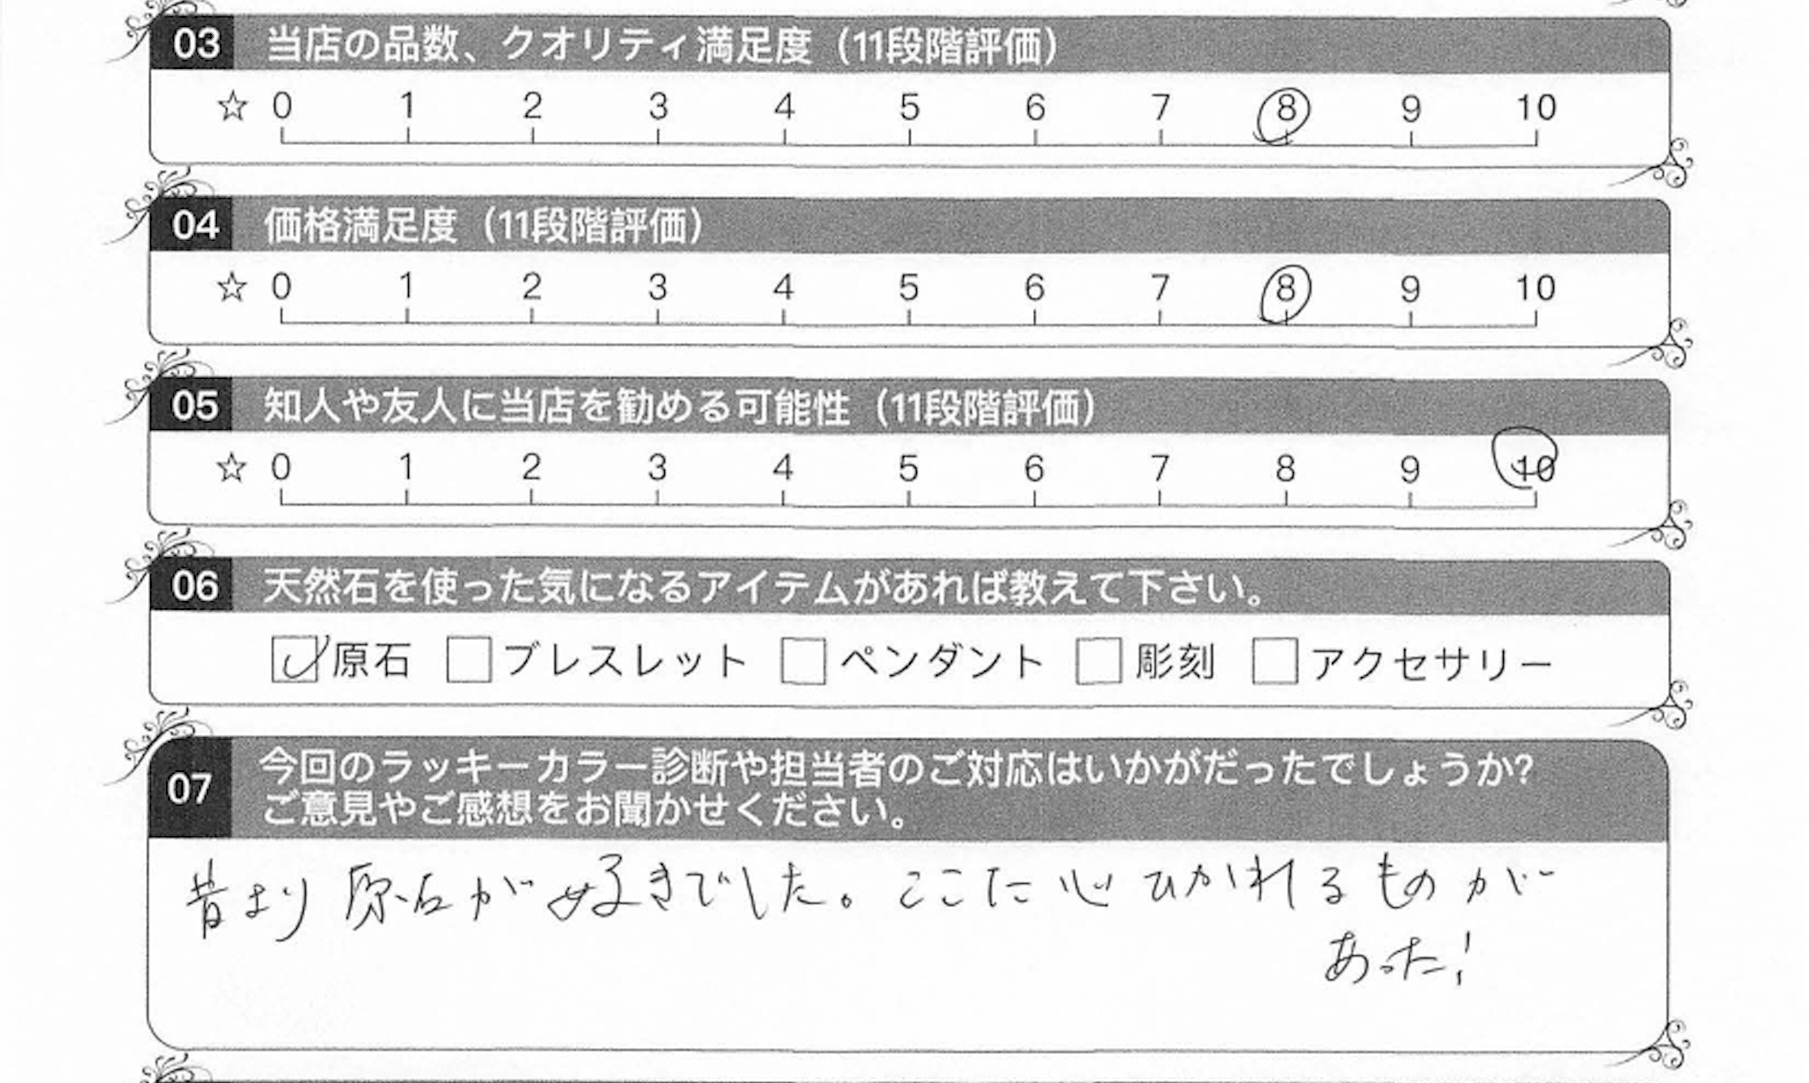 03 当店の品数、クオリティ満足度（11段階評価）
☆ 0 1 2 3 4 5 6 7 8 9 10
04 価格満足度（11段階評価）
☆ 0 1 2 3 4 5 6 7 8 9 10
05 知人や友人に当店を勧める可能性（11段階評価）
☆ 0 1 2 3 4 5 6 7 8 9 10
06 天然石を使った気になるアイテムがあれば教えて下さい。
☑原石 □ブレスレット □ペンダント □彫刻 □アクセサリー
07 今回のラッキーカラー診断や担当者のご対応はいかがだったでしょうか?
ご意見やご感想をお聞かせください。
昔より原石が好きでした。ここに心ひかれるものが
あった!